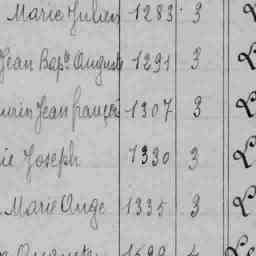 Marie Julien 1283 3
Jean Bapte Auguste 1291 3
Jean françois 1307 3
Joseph 1330 3
Marie Ange 1335 3